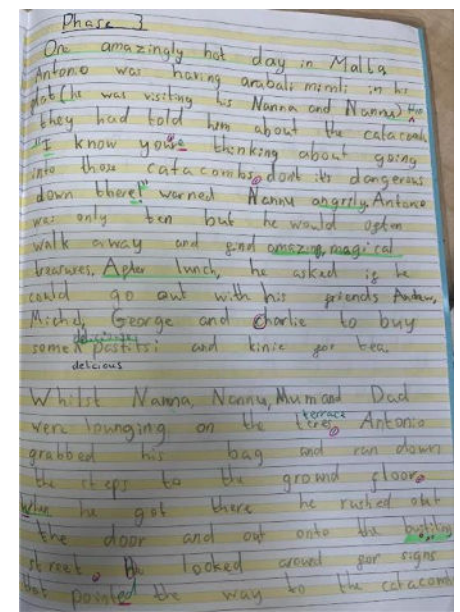 Phase 3
One amazingly hot day in Malta
Antonio was having arabali mimli in his
flat (he was visiting his Nanna and Nannu)
they had told him about the catacomb
"I know you're thinking about going
into those catacombs. dont its dangerous
down there!" warned Nannu angrily. Antonio
was only ten but he would often
walk away and find amazing, magical
treasures. After lunch, he asked if he
could go out with his friends Andrew,
Michel, George and Charlie to buy
some delicious pastitsi and kinie for tea.
delicious
Whilst Nanna, Nannu, Mum and Dad
were lounging on the terrace. Antonio
grabbed his bag and ran down
the steps to the ground floor.
When he got there he rushed out
the door and out onto the bustling
street. He looked around for signs
that pointed the way to the catacomb